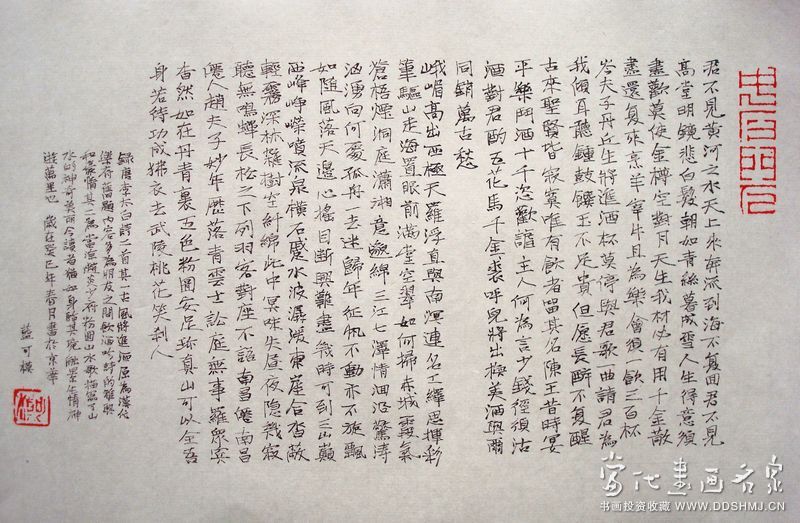 君不見黃河之水天上來奔流到海不復回君不見
高堂明鏡悲白髮朝如青絲暮成雪人生得意須
盡歡莫使金樽空對月天生我材必有用千金散
盡還復來烹羊宰牛且為樂會須一飲三百杯
岑夫子丹丘生將進酒杯莫停與君歌曲請君為
我傾耳聽鐘鼓饌玉不足貴但願長醉不復醒
古來聖賢皆寂寞惟有飲者留其名陳王昔時宴
平樂鬥酒十千恣歡謔主人何為言少錢徑須沽
酒對君酌五花馬千金裘呼兒將出換美酒與爾
同銷萬古愁
峨嵋高出西極天羅浮直與南溟連名工繹思揮彩
筆驅山走海置眼前滿堂空翠如可掃赤城霞氣
蒼梧煙洞庭瀟湘意渺綿三江七澤情洄沿驚濤
洶湧向何處孤舟一去迷歸年征帆不動亦不旋飄
如隨風落天邊心搖目斷興難盡幾時可到三山巔
西峰崢嶸噴流泉橫石蹙水波潺湲東崖合沓蔽
輕霧深林雜樹空芊綿此中冥昧失晝夜隱几寂
聽無鳴蟬長松之下列羽客對座不語南昌僊南昌
僊人趙夫子妙年歷落青雲士訟庭無事羅眾賓
杳然如在丹青裏五色粉圖安足珍真山可以全吾
身若待功成拂衣去武陵桃花笑殺人
錄唐李太白詩之首其一古風將進酒原為漢代
樂府舊題內容多為朋友之間飲酒吟詩的
當代書畫名家
书画投资收藏 WWW.DDSHMJ.CN